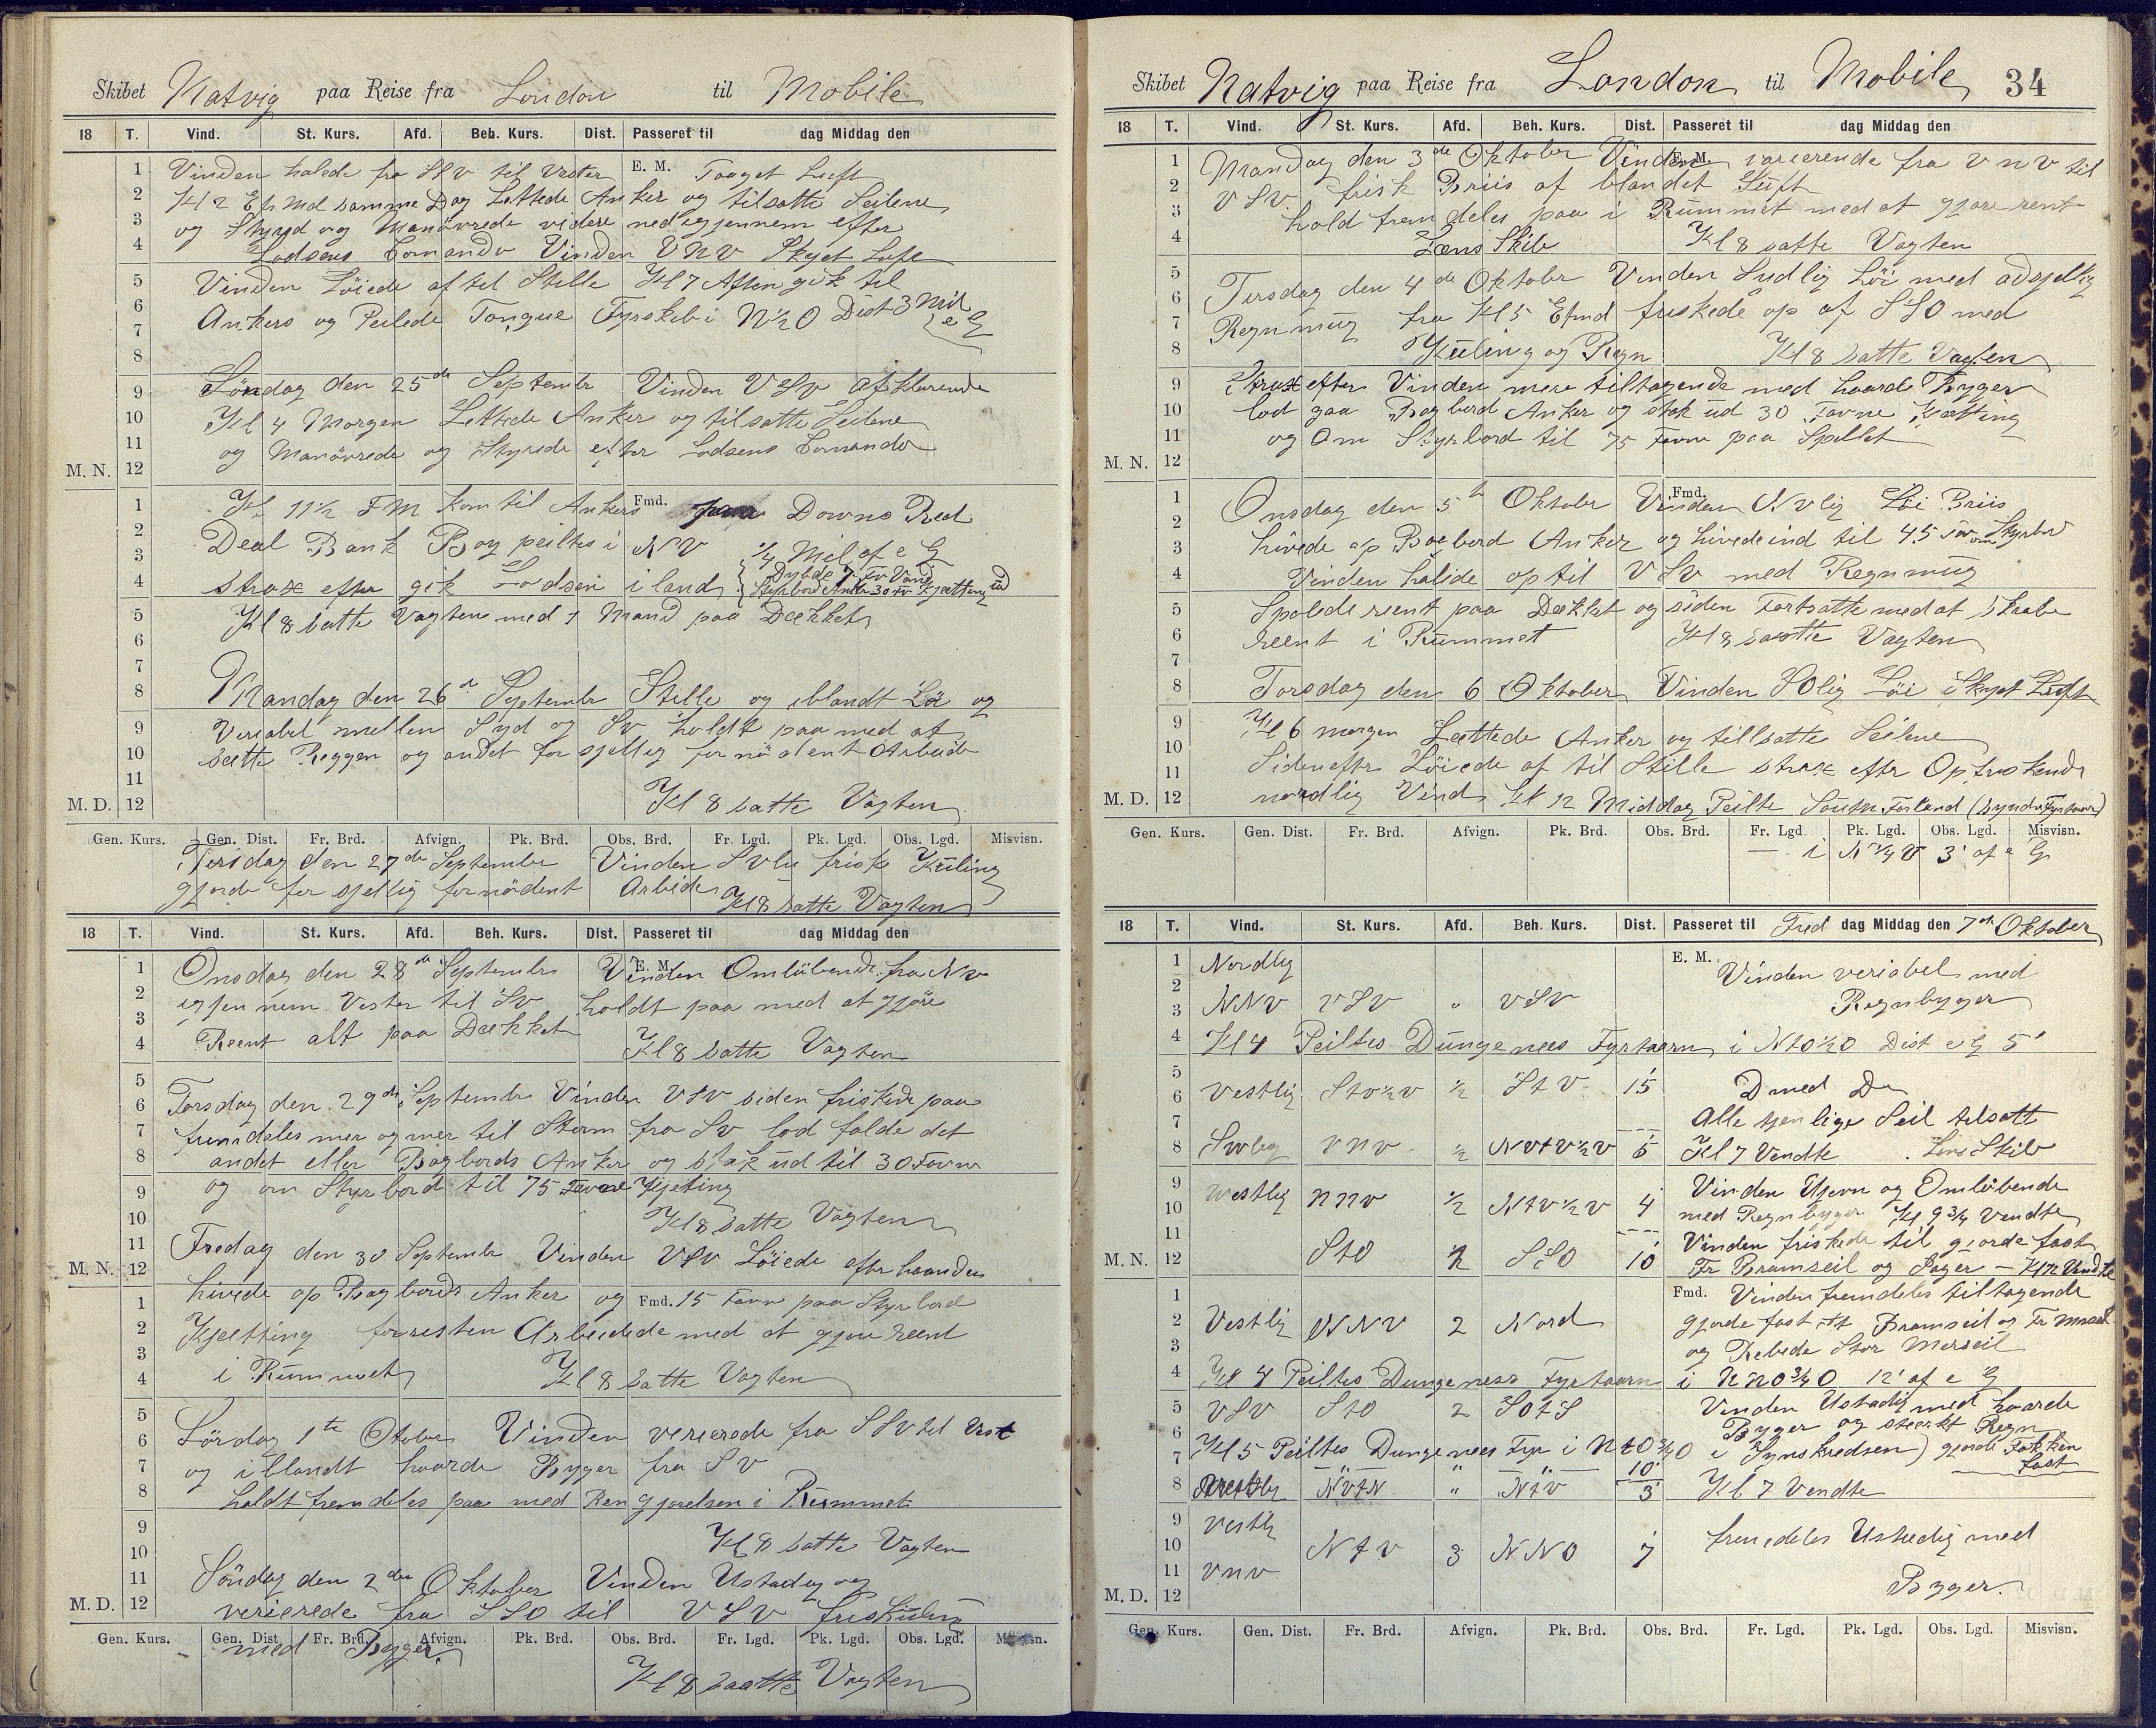 Skibet Natvig paa Reise fra London til Mobile
18 T. Vind. St. Kurs. Afd. Beh. Kurs. Dist. Passeret til dag Middag den
Vinden halede fra SSV til Vester E. M. Taaget Luft
Kl 2 Ef Md samme Dag Lettede Anker og tilsatte Seilene
og Styred og Manövrede videre ned igjennem efter
Lodsens Comando Vinden VNV Skyet Luft
Vinden Löiede af til Stille Kl 7 Aften gik til
Ankers og Peilede Tongue Fyrskib i N½O Dist 3 Mil
e G
Söndag den 25de Septembr Vinden VSV afklarende
Kl 4 Morgen Lettede Anker og tilsatte Seilene
og Manövrede og Styrede efter Lodsens Comando
M. N.
Kl 11½ FM kom til Ankers Fmd. Downs Red
Deal Bank Boy peiltes i NV ¼ Mil af e G
strax efter gik Lodsen i land Dybde 7 Fv Vand
Styrbord Anker 30 Fv Kjætting ud
Kl 8 satte Vagten med 1 Mand paa Dækket
Mandag den 26de Septembr Stille og iblandt Löi og
Veriabel mellen Syd og SV holdt paa med at
sætte Riggen og andet forsjellig fornödent Arbeide
M. D. Kl 8 satte Vagten
Gen. Kurs. Gen. Dist. Fr. Brd. Afvign. Pk. Brd. Obs. Brd. Fr. Lgd. Pk. Lgd. Obs. Lgd. Misvisn.
Tirsdag den 27de September Vinden SVlig frisk Küling
gjorde forsjellig fornödent Arbide Kl 8 satte Vagten
18 T. Vind. St. Kurs. Afd. Beh. Kurs. Dist. Passeret til dag Middag den
Onsdag den 28de Septembr Vinden E. M. Omlübende fra NV
igjennem Vester til SV holdt paa med at gjöre
Reent alt paa Dækket Kl 8 satte Vagten
Torsdag den 29de Septembr Vinden VSV siden friskede paa
fremdeles mer og mer til Storm fra SV lod falde det
andet eller Bagbords Anker og stak üd til 30 Favne
og om Styrbord til 75 Favne Kjeting
Kl 8 satte Vagten
Fredag den 30 Septembr Vinden VSV Löiede efterhaanden
M. N.
hivede op Bagbords Anker og Fmd. 15 Favn paa Styrbord
Kjetting forresten Arbeidede med at gjöre reent
i Rümmet Kl 8 satte Vagten
Lördag 1te Otober Vinden verierede fra SSV til Vest
og iblandt haarde Byger fra SV
holdt fremdeles paa med Rengjorelsen i Rümmet
Kl 8 satte Vagten
Söndag den 2den Oktober Vinden Ustadig og
M. D. verierede fra SSO til VSV friskülin
Gen. Kurs. Gen. Dist. Fr. Brd. Afvign. Pk. Brd. Obs. Brd. Fr. Lgd. Pk. Lgd. Obs. Lgd. Misvisn.
med Byger
Kl 8 saatte Vagten
Skibet Natvig paa Reise fra London til Mobile 34
18 T. Vind. St. Kurs. Afd. Beh. Kurs. Dist. Passeret til dag Middag den
Mandag den 3de Oktober Vinden E. M. varierende fra VNV til
VSV frisk Briis af blandet Lüft
hold fremdeles paa i Rümmet med at gjöre rent
Læns Skib Kl 8 satte Vagten
Tirsdag den 4de Oktober Vinden Sudlig Löi med adsjellig
Regnmüg fra Kl 5 Efmd friskede op af SSO med
Küling og Regn Kl 8 satte Vagten
Strax efter Vinden mere tiltagende med haarde Byger
lod gaa Bagbord Anker og stak üd 30 Favne Kjætting
og Om Styrbord til 75 Favne paa Spillet
M. N.
Onsdag den 5te Oktober Vinden Fmd. NVlig Löi Briis
hivede op Bagbord Anker og hivede ind til 45 Favne Styrbor
Vinden halede op til VSV med Regnmüg
Spolede reent paa Dækket og siden Fortsatte med at skrabe
reent i Rümmet Kl 8 saatte Vagten
Torsdag den 6 Oktober Vinden SOlig Löi Skyet Lüft
Kl 6 morgen Lættede Anker og tillsatte Seilene
Siden efter Löiede af til Stille strax efter Opfriskende
M. D. nordlig Vind Kl 12 Middag Peilte South Forland (Syndre Fyrtaarn)
Gen. Kurs. Gen. Dist. Fr. Brd. Afvign. Pk. Brd. Obs. Brd. Fr. Lgd Pk. Lgd. Obs. Lgd. Misvisn.
i N¼V 3' af e G
18 T. Vind. St. Kurs. Afd. Beh. Kurs. Dist. Passeret til Fred dag Middag den 7de Oktober
Nordlig E. M. Vinden veriabel med
NNV VSV " VSV Regnbyger
Kl 4 Peiltes Dungenees Fyrtaarn i NtO½O Dist e G 5'
Vestlig StO½V ½ StV 15 D med Do
Alle tjenlige Seil tilsatt
SVlig VNV ½ NVtV½V 5 Kl 7 Vendte Lens Skib
Vestlig NNV ½ NtV½V 4 Vinden Ujevn og Omlöbende
med Regnbyger Kl 9¾ Vendte
Vinden friskede til gjorde fast
M. N. StO ½ SSO 10 Fr Bramseil og Jager - Kl 12 Vendte
Fmd. Vinden fremdeles tiltagende
Vestlig NNV 2 Nord gjorde fast St Bramseil og Fr Mseil
og Rebede Stor Merseil
Kl 4 Peiltes Dungeness Fyrtaarn i NNO¾O 12' af e G
VSV StO 2 SOtS Vinden Ustadig med haarde
Byger og stærkt Regn
Kl 5 Peiltes Dungenees Fyr i NtO¾O i Synskredsen) gjorde Fokken
fast
10
NVtN " NtV 3 Kl 7 Vendte
Vestlig
NtV 3 NNO 7 fremdeles Ustadig med
VNV
M. D. Bygger.
Gen. Kurs. Gen. Dist. Fr. Brd. Afvign. Pk. Brd. Obs. Brd. Fr. Lgd. Pk. Lgd. Obs. Lgd. Misvisn.